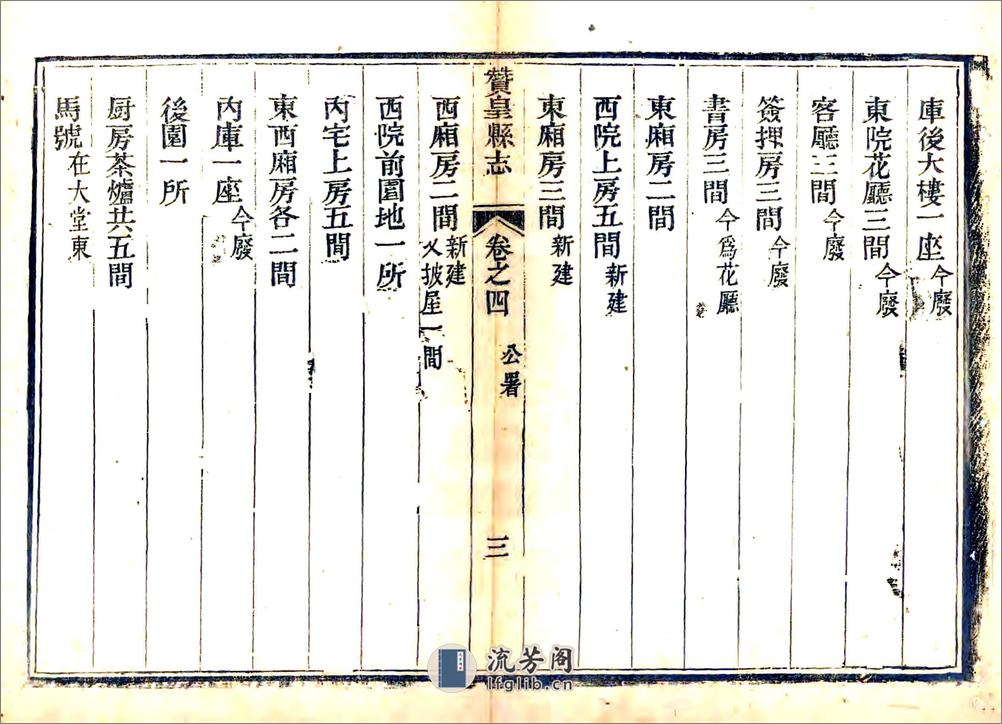 庫後大樓一座今廢
東院花廳三間今廢
客廳三間今廢
簽押房三間今廢
書房三間今爲花廳
東廂房二間
西院上房五間新建
東廂房三間新建
贊皇縣志
卷之四
公署
三
西廂房二間新建
火披屋一間
西院前園地一所
內宅上房五間
東西廂房各二間
內庫一座今廢
後園一所
厨房茶爐共五間
馬號在大堂東
流芳阁
lfglib.cn